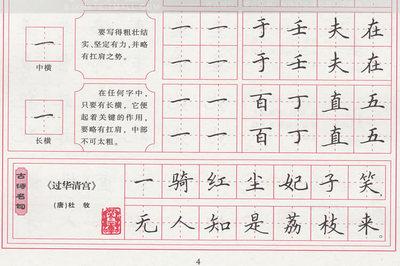 一
中横
要写得粗壮结
实、坚定有力，并略
有扛肩之势。
一 一 于 壬 夫 在
一 一 于 壬 夫 在
一
长横
在任何字中，
只要有长横，它便
起着关键的作用，
要略有扛肩，中部
不可太粗。
一 一 百 丁 直 五
一 一 百 丁 直 五
古诗名句
《过华清宫》
(唐)杜 牧
一骑红尘妃子笑，
无人知是荔枝来。
4